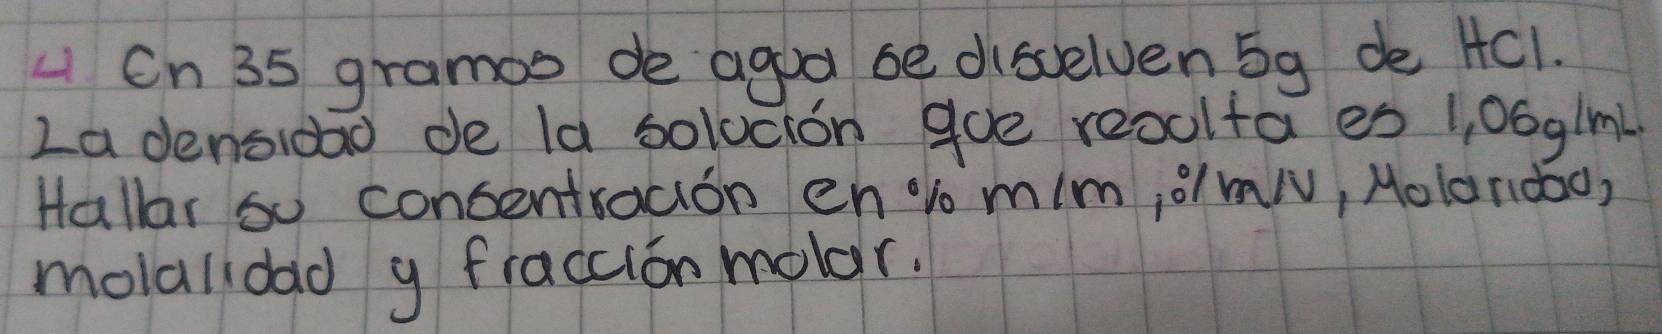 4. En 35 gramos de agua se disuelven 5g de HCl.
La densidad de la solución que resulta es 1,06g/mL.
Hallar su consentración en % m/m, % m/v, Molaridad,
molalidad y fracción molar.